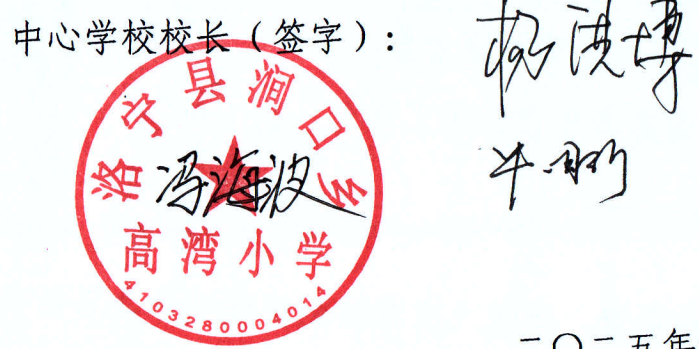 中心学校校长（签字）：
杨洪博
洛宁县涧口乡
冯海波
高湾小学
4103280004014
二〇二五年